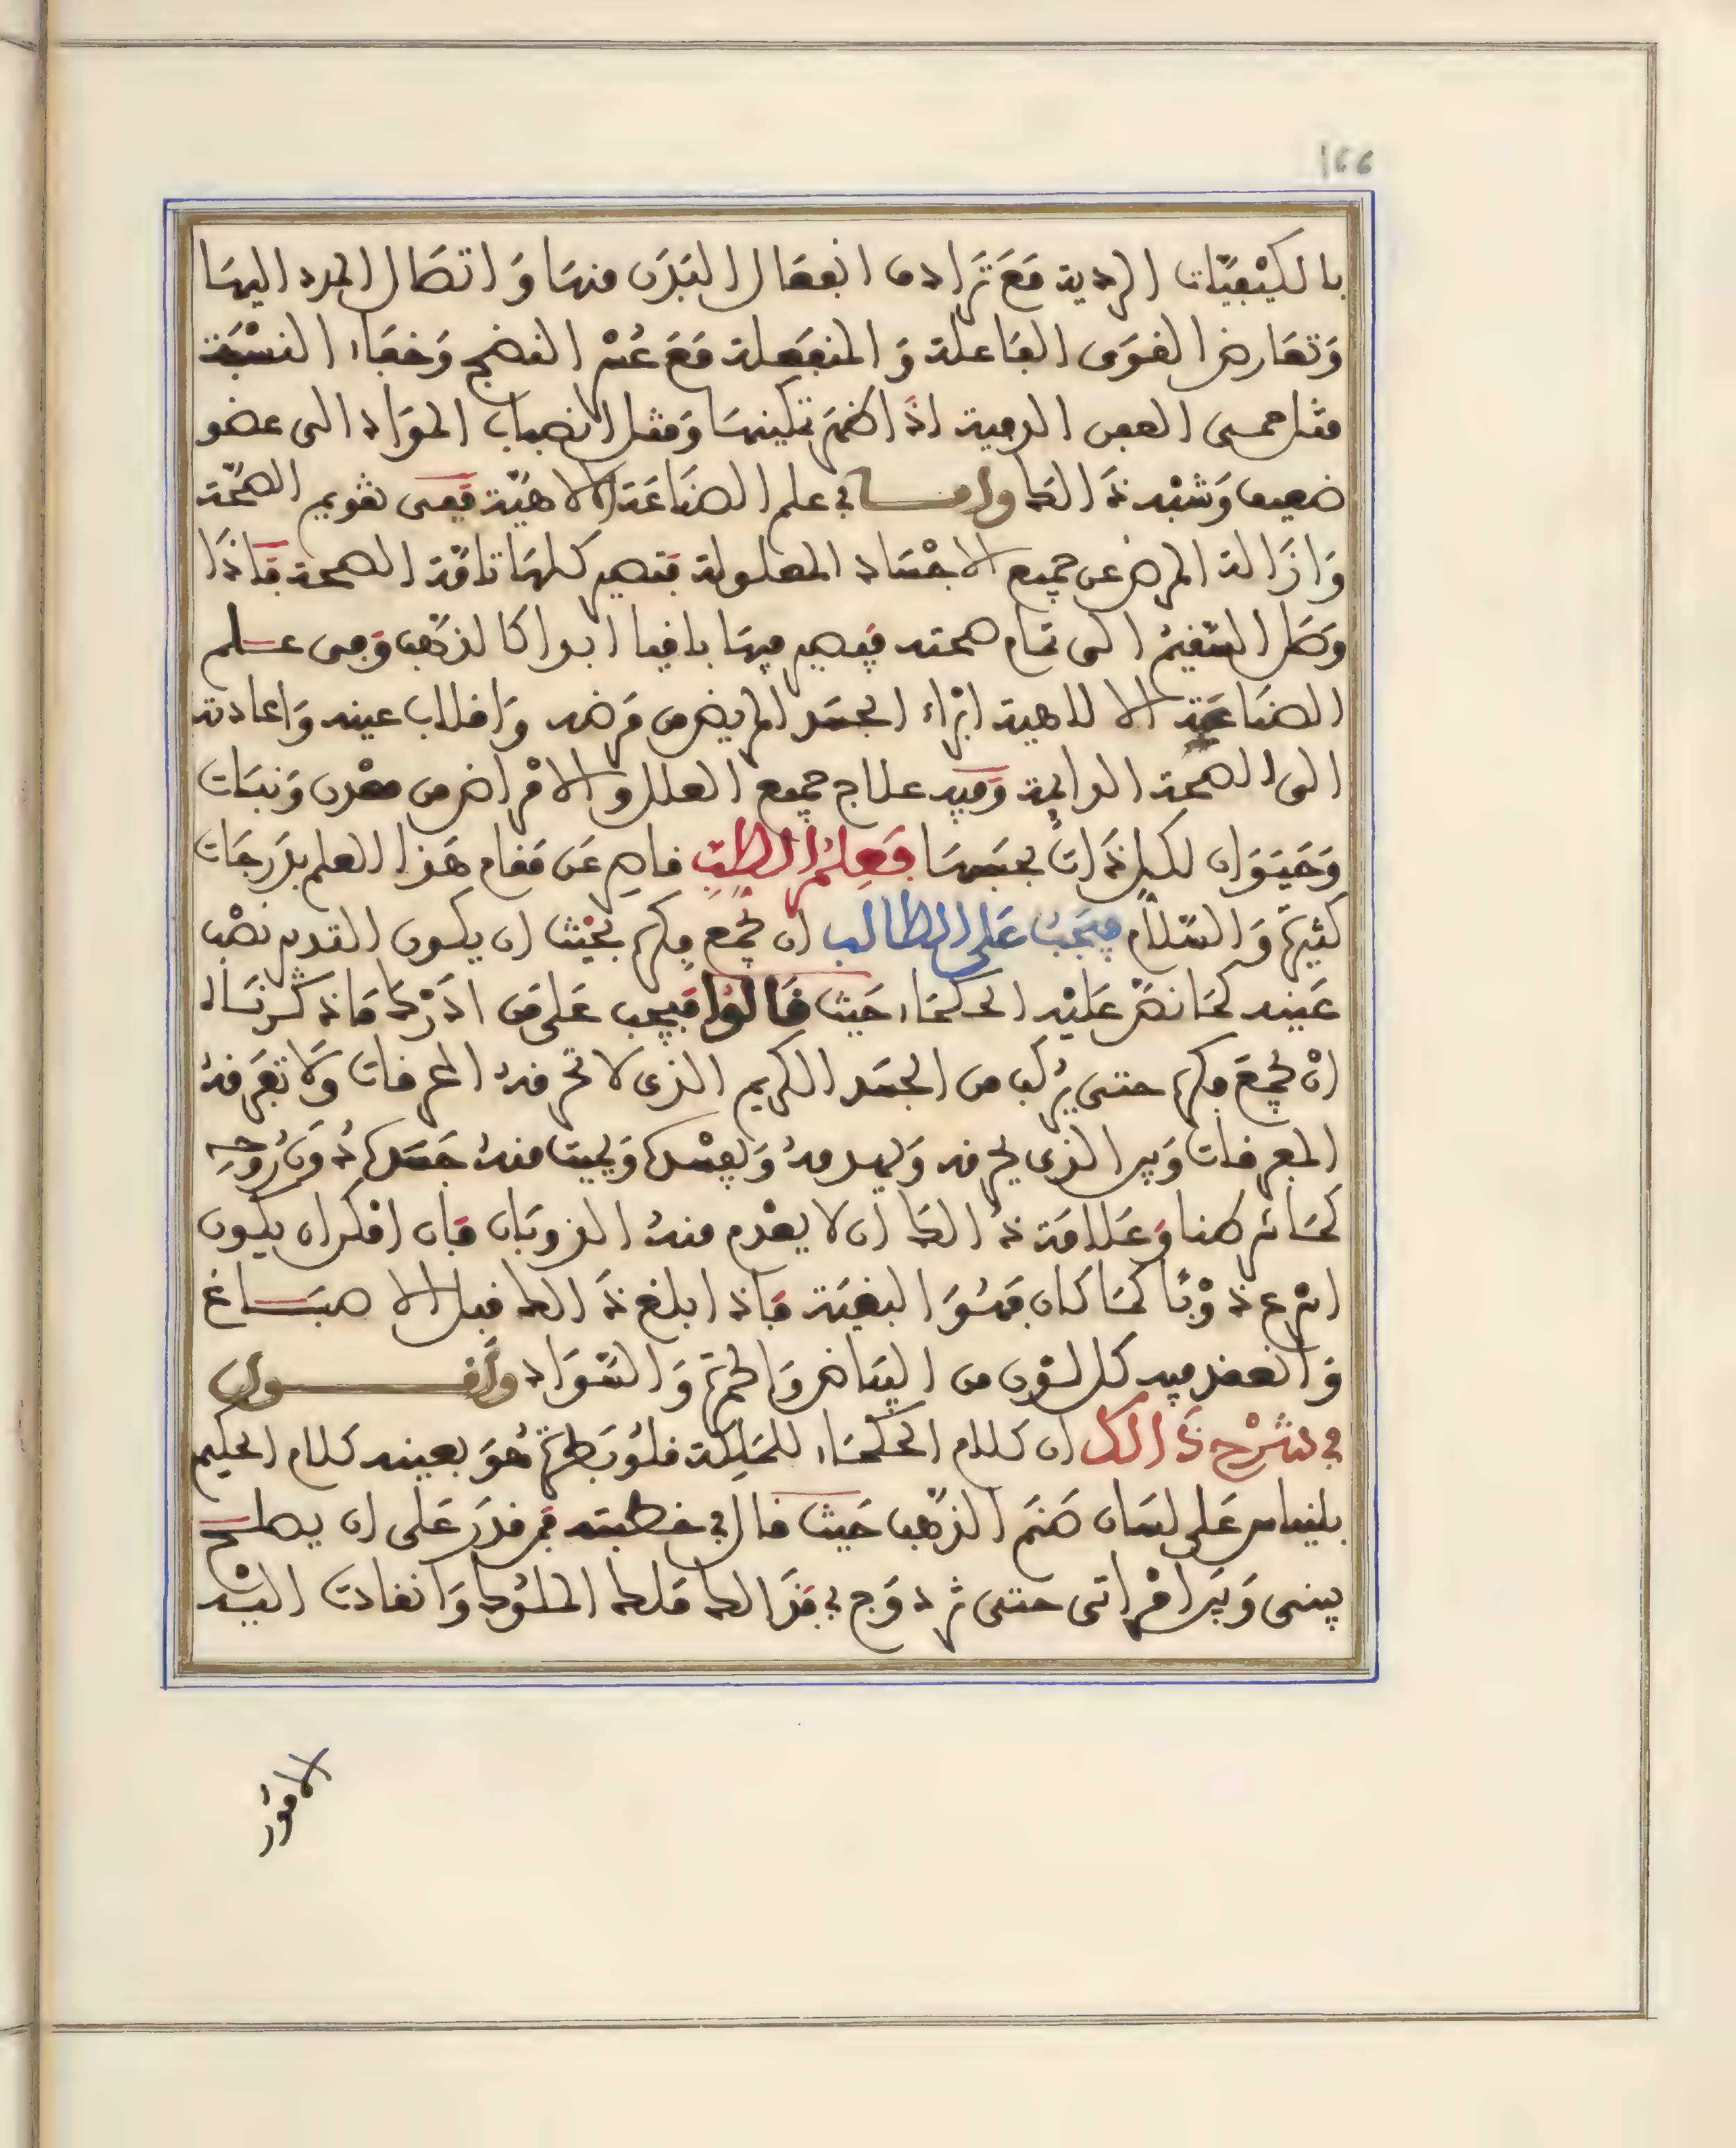 166
بالكيفيّات الردية مَعَ تَرادف انفعَال البَدَن منهَا وَاتصَال المدد اليهَا
وَتعَارض القوَى الفَاعلة وَالمنفعَلة مَعَ عُسْر النضج وَخفاء النسْبَة
مثل حمى العفن الدمية اذَا ضم تكينهَا وَمثل انصباب الموَاد الى عضو
ضعيف وَشبْه ذَالك وامــا في علم الصنَاعَة الالاهيّة فهى تقويم الصحّة
وَازَالة المرض عن جميع الاجْسَاد المعلولة فتصير كلهَا تامّة الصحة فاذَا
وَصَل السّقيمُ الى تمَام صحته فيصير فيهَا باقيا ابدا كالذهب وَهى عـلم
الصنَاعَة الالاهية ابْرَاء الجسَد المريض من مَرَضه وَاقلاب عينه وَاعادته
الى الصحّة الدايمة وَفيه علاج جميع العلل والامْراض من معْدن وَنبَات
وَحَيَوَان لكل ذَات بحسبهَا فَعِلمُ الطِبِّ قاصر عَن مَقام هَذا العلم بدَرجَات
كثيرَة وَالسّلام فيَجبُ عَلى الطالب ان يجْمَع فكره بحَيْث ان يكون القدم نصْب
عَينه كمَا نصّ عَليْه الحكمَاء حَيث قَالوُا فيجب عَلى مَن ادْرَك مَاذكرنَاه
انْ يجْمَعَ فكره حتى يركب من الجسَد الكريم الذى لا تحرقهُ المحرقات وَلَا تفَرقهُ
المفرقات وَبير الذى يحرقه وَيهدمهُ وَيفسْدهُ وَيميتُ منهُ جَسَدَهُ دُونَ رُوحِه
كمَا شرطنا وَعَلامَة ذَالك ان لا يعْدم منهُ الذوبَان فان امْكن ان يكون
اسْرع ذوْبًا كمَا كان فَهُوَ البغيَة فاذا بلغ ذَالك قبل الاصبَــاغ
وَانعقد فيه كل لوْن من البيَاض وَالحمرَة وَالسّوَاد وَاقــــول
في شرْح ذَالك ان كلام الحكمَاء للمَلِكَة قلوُبَطرَة هُوَ بعينه كلام الحكيم
بلنيَاس عَلى لسَان صَنم الذّهب حَيث قال في خطبته فمن قدَر عَلى ان يصلـح
بينى وَبيَن امْراتى حتى نزدوَج فبذَالك مَلك الملوُك وَانقادت اليْه
الامُور